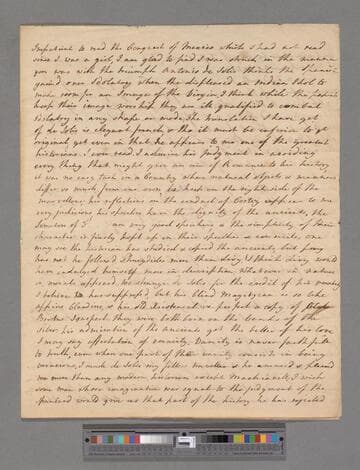 Impatient to read the Conquest of Mexico which I had not read
since I was a girl, I am glad to find I was struck in the manner
you was with the triumph Antonio de Solis thinks the Spaniards
gained over Idolatry when they displaced an Indian Idol to
make room for an Image of the Virgin, I think while the papists
keep their image worship they are ill qualified to combat
Idolatry in any shape or mode, the translation I have got
of de Solis is elegant french, so tho it must be inferior to ye
original, yet even in that he appears to me one of the greatest
historians I ever read, I admire his judgement in avoiding
every thing that might give an air of Romance to his history
it was no easy task in a Country where natural objects & manners
differ so much from our own to keep on the right side of the
marvellous, his reflections on the conduct of Cortez appear to me
very judicious, his speeches have the dignity of the ancients, the
Senators of are very good speakers & the simplicity of their
character is finely kept up in their speeches as in one
may see the historian has studied & copied the ancients but pray
has not he follow'd Thucydides more than Livy, I think Livy would
have indulged himself more in description. Whatever in nature
or morals appeared too strange de Solis for the credit of his
I believe he suppress'd, but his blind Magotzcan is so like
Appius Claudius, & his old as perfect a copy of
Brutus I suspect they were both born on the of the
Solis, his admiration of the ancients got the better of his love
I may say affectation of veracity. Vanity is never faithfull
to truth, even when one part of the vanity consists in being
veracious, I wish de Solis my fellow traveller & he amused & pleased
me more than any modern historian except Machiavel, I wish
some man whose imagination was equal to the judgement of the
Spaniard would give us that part of the history he has rejected